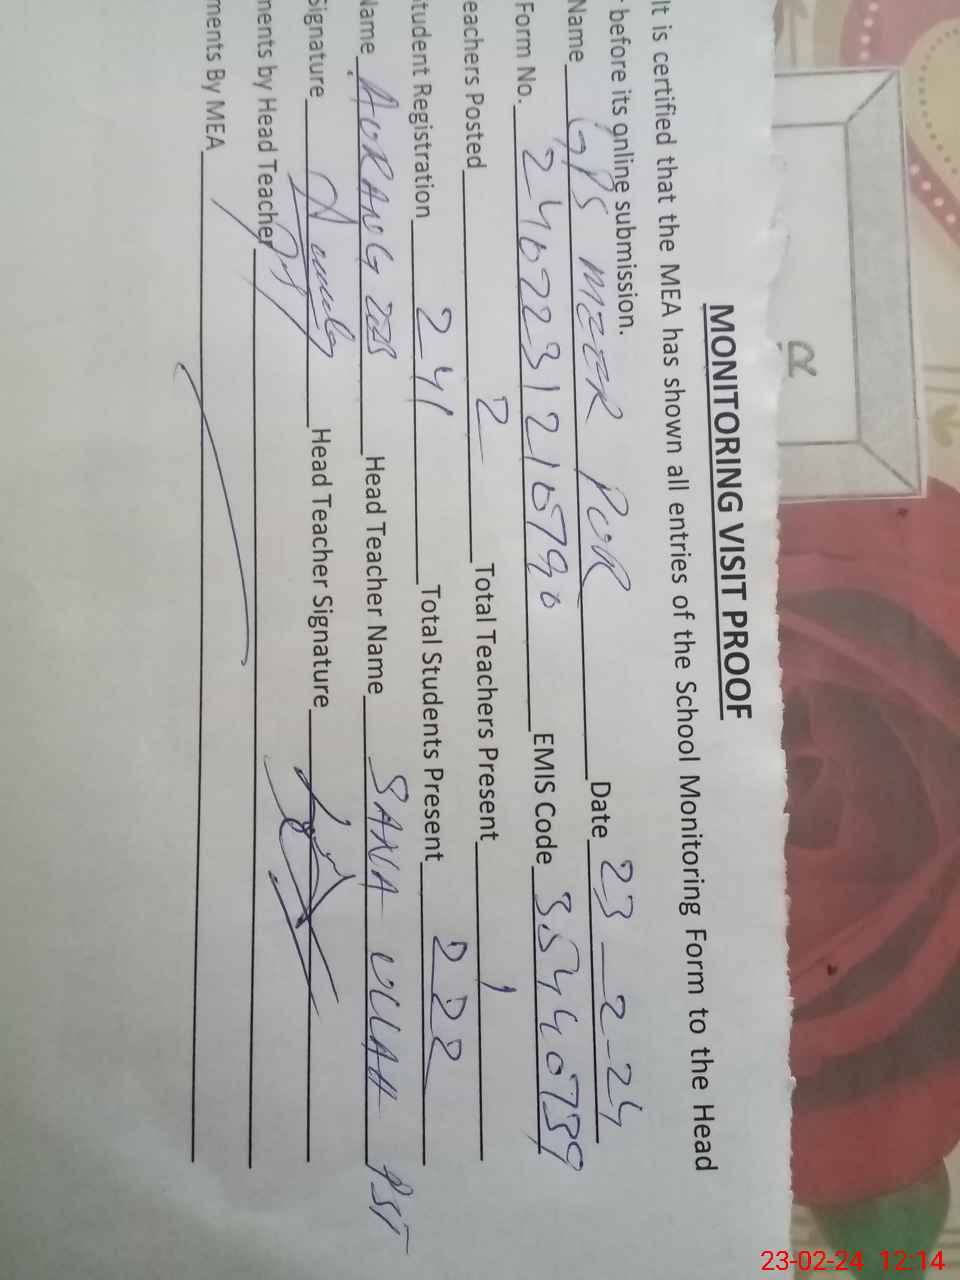 MONITORING VISIT PROOF
It is certified that the MEA has shown all entries of the School Monitoring Form to the Head
before its online submission.
Name GPS MEER POR Date 23-2-24
Form No. EMIS Code
eachers Posted 2 Total Teachers Present 1
tudent Registration 241 Total Students Present 222
Name AURANGZEB Head Teacher Name SANA ULLAH PST
Signature Head Teacher Signature
ments by Head Teacher
ments By MEA
23-02-24 12:14